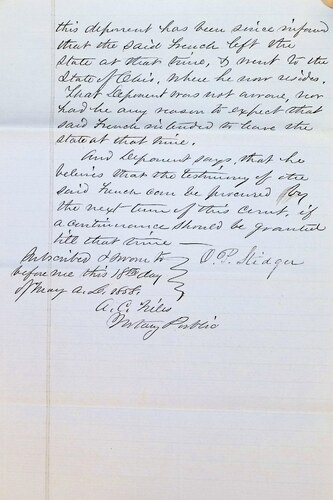 this deponent has been since informed
that the said French left the
state at that time, & went to the
State of Ohio, where he now resides.
That Deponent was not aware, nor
had he any reason to expect that
said French intended to leave the
state at that time.
And Deponent says, that he
believes that the testimony of the
said French can be procured by
the next term of this Court, if
a continuance should be granted
till that time —
Subscribed & sworn to
before me this 18th day
of May A.D. 1858.
O. P. Stidger
A. C. Niles
Notary Public